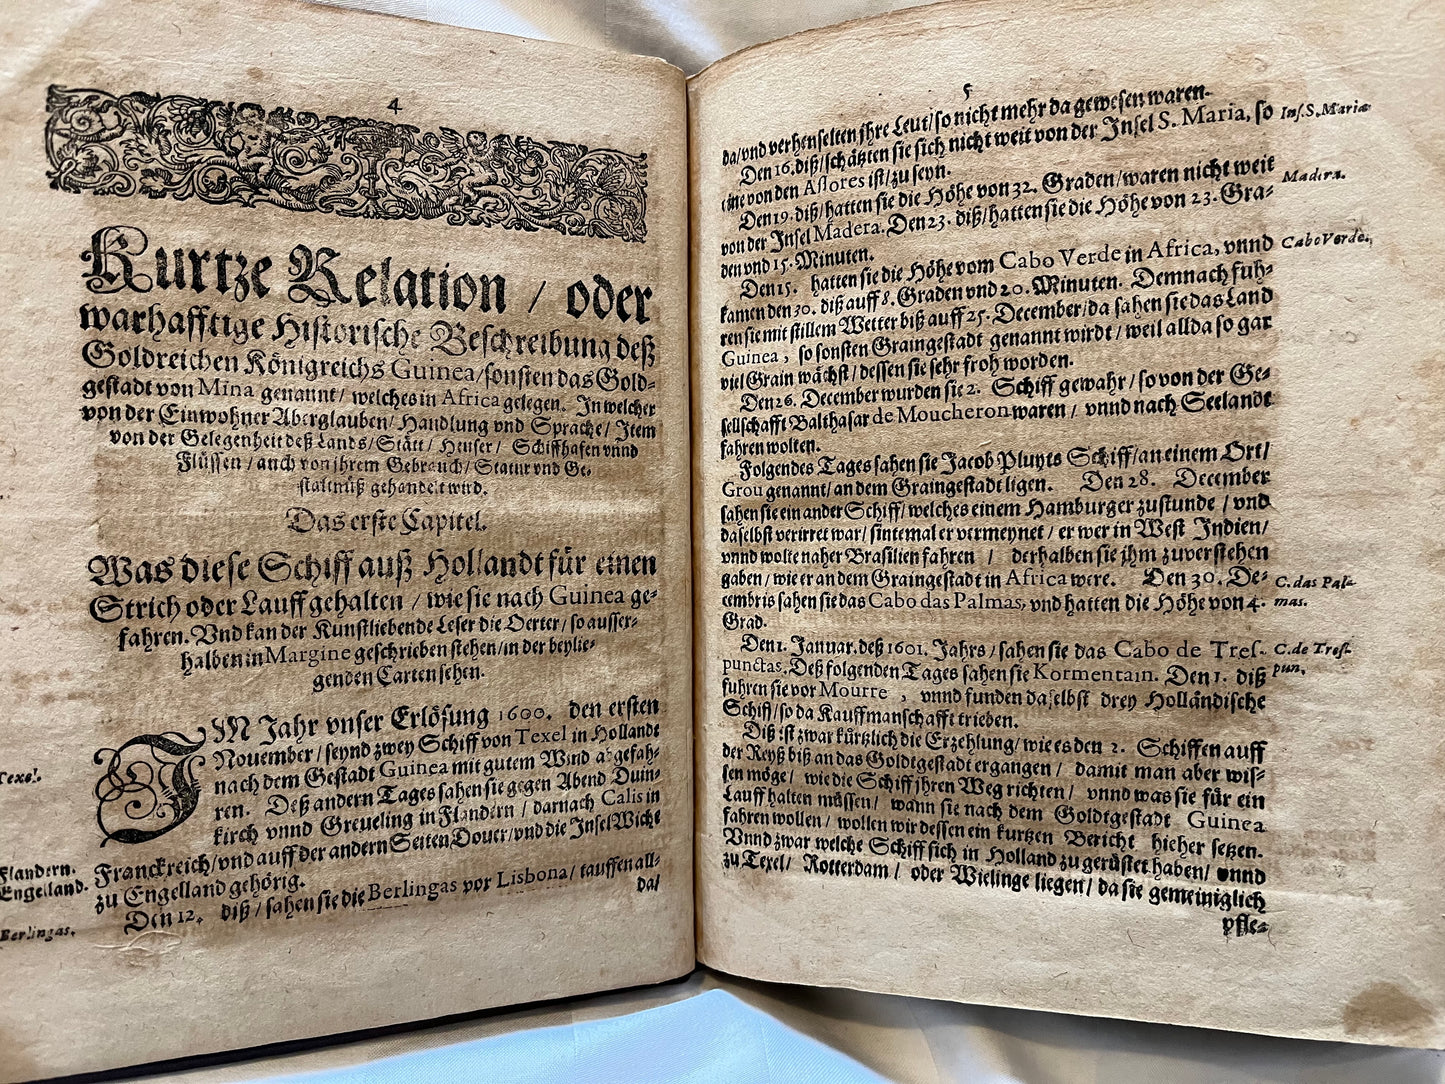 4
Kurtze Relation / oder
warhafftige Historische Beschreibung deß
Goldreichen Königreichs Guinea/sonsten das Gold-
gestadt von Mina genannt/ welches in Africa gelegen. In welcher
von der Einwohner Aberglauben/ Handlung vnd Sprache/ Item
von der Gelegenheit deß Lands/ Stätt/ Heuser/ Schiffhafen vnnd
Flüssen/ auch von jhrem Gebrauch/ Statur vnd Ge-
staltnuß gehandelt wird.
Das erste Capitel.
Was diese Schiff auß Hollandt für einen
Strich oder Lauff gehalten / wie sie nach Guinea ge-
fahren. Vnd kan der Kunstliebende Leser die Oerter/ so ausser-
halben in Margine geschrieben stehen/ in der beylie-
genden Carten sehen.
IN Jahr vnser Erlösung 1600. den ersten
Nouember/ seynd zwey Schiff von Texel in Hollandt
nach dem Gestadt Guinea mit gutem Wind abgefah-
Texel.
ren. Deß andern Tages sahen sie gegen Abend Duin-
kirch vnnd Greueling in Flandern/ darnach Calis in
Franckreich/ vnd auff der andern Seiten Douer/ vnd die Insel Wicht
Flandern.
Engelland.
zu Engelland gehörig.
Den 12. diß/ sahen sie die Berlingas vor Lisbona/ tauffen all-
Berlingas.
da/
5
da/ vnd verhenselten jhre Leut/ so nicht mehr da gewesen waren.
Den 16. diß/ schätzten sie sich nicht weit von der Insel S. Maria, so
Ins. S. Maria
eine von den Assores ist/ zu seyn.
Den 19. diß/ hatten sie die Höhe von 32. Graden/ waren nicht weit
Madera.
von der Insel Madera. Den 23. diß/ hatten sie die Höhe von 23. Gra-
den vnd 15. Minuten.
Den 25. hatten sie die Höhe vom Cabo Verde in Africa, vnnd
Cabo Verde.
kamen den 30. diß auff 8. Graden vnd 20. Minuten. Demnach fuh-
ren sie mit stillem Wetter biß auff 25. December/ da sahen sie das Land
Guinea, so sonsten Graingestadt genannt wirdt/ weil allda so gar
viel Grain wächst/ dessen sie sehr froh worden.
Den 26. December wurden sie 2. Schiff gewahr/ so von der Ge-
sellschafft Balthasar de Moucheron waren/ vnnd nach Seelandt
fahren wolten.
Folgendes Tages sahen sie Jacob Pluyts Schiff/ an einem Ort/
Grou genannt/ an dem Graingestadt ligen. Den 28. December
sahen sie ein ander Schiff/ welches einem Hamburger zustunde/ vnd
daselbst verirret war/ sintemal er vermeynet/ er wer in West Indien/
vnnd wolte naher Brasilien fahren / derhalben sie jhm zuverstehen
gaben/ wie er an dem Graingestadt in Africa were. Den 30. De-
cembris sahen sie das Cabo das Palmas, vnd hatten die Höhe von 4.
C. das Pal-
mas.
Grad.
Den 1. Januar. deß 1601. Jahrs/ sahen sie das Cabo de Tres-
C. de Trespun.
punctas. Deß folgenden Tages sahen sie Kormentain. Den 1. diß
fuhren sie vor Mourre, vnnd funden daselbst drey Holländische
Schiff/ so da Kauffmanschafft trieben.
Diß ist zwar kürtzlich die Erzehlung/ wie es den 2. Schiffen auff
der Reyß biß an das Goldtgestadt ergangen/ damit man aber wis-
sen möge/ wie die Schiff jhren Weg richten/ vnnd was sie für ein
Lauff halten müssen/ wann sie nach dem Goldtgestadt Guinea
fahren wollen/ wollen wir dessen ein kurtzen Bericht hieher setzen.
Vnnd zwar welche Schiff sich in Holland zu gerüstet haben/ vnnd
zu Texel/ Rotterdam/ oder Wielinge liegen/ da sie gemeiniglich
pfle-